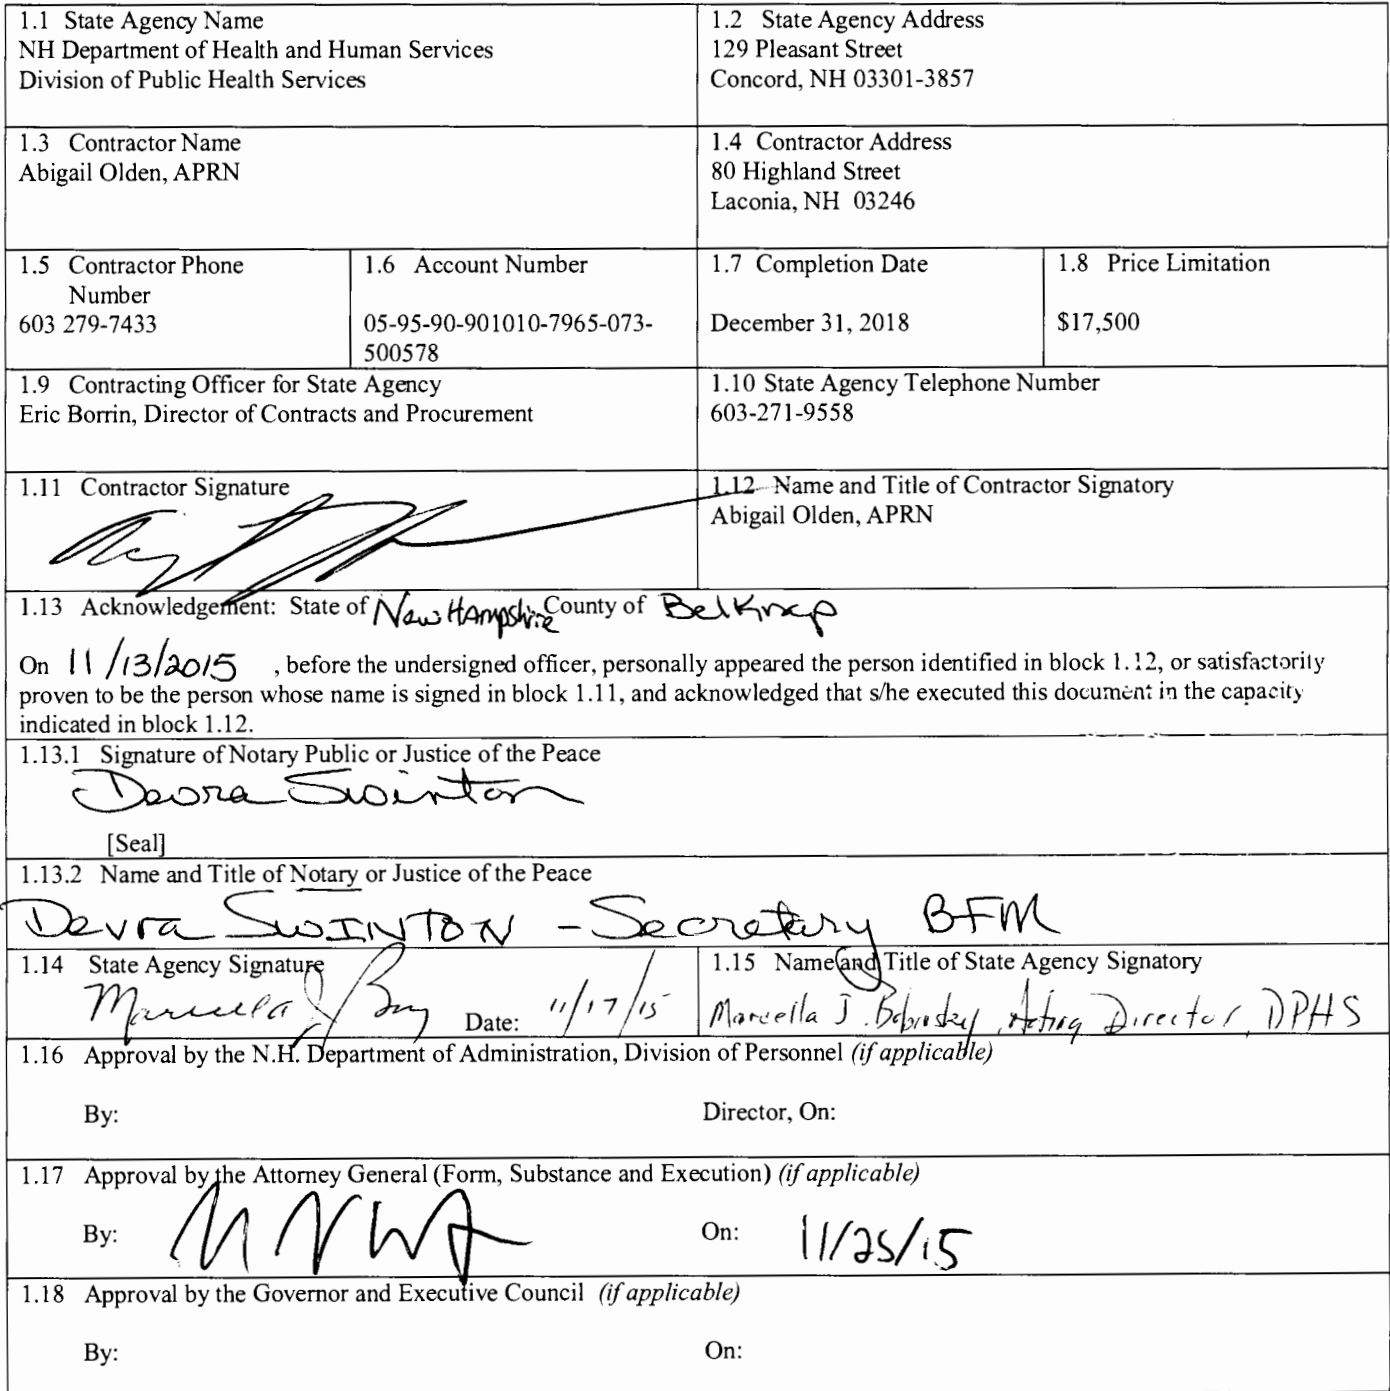 1.1 State Agency Name
NH Department of Health and Human Services
Division of Public Health Services
1.2 State Agency Address
129 Pleasant Street
Concord, NH 03301-3857
1.3 Contractor Name
Abigail Olden, APRN
1.4 Contractor Address
80 Highland Street
Laconia, NH 03246
1.5 Contractor Phone
Number
603 279-7433
1.6 Account Number
05-95-90-901010-7965-073-
500578
1.7 Completion Date
December 31, 2018
1.8 Price Limitation
$17,500
1.9 Contracting Officer for State Agency
Eric Borrin, Director of Contracts and Procurement
1.10 State Agency Telephone Number
603-271-9558
1.11 Contractor Signature
1.12 Name and Title of Contractor Signatory
Abigail Olden, APRN
1.13 Acknowledgement: State of New Hampshire County of Belknap
On 11/13/2015 , before the undersigned officer, personally appeared the person identified in block 1.12, or satisfactorily
proven to be the person whose name is signed in block 1.11, and acknowledged that s/he executed this document in the capacity
indicated in block 1.12.
1.13.1 Signature of Notary Public or Justice of the Peace
Devra Swinton
[Seal]
1.13.2 Name and Title of Notary or Justice of the Peace
Devra SWINTON - Secretary BFM
1.14 State Agency Signature
Marcella J Date: 11/17/15
1.15 Name and Title of State Agency Signatory
Marcella J. Bobinsky, Acting Director, DPHS
1.16 Approval by the N.H. Department of Administration, Division of Personnel (if applicable)
By: Director, On:
1.17 Approval by the Attorney General (Form, Substance and Execution) (if applicable)
By: On: 11/25/15
1.18 Approval by the Governor and Executive Council (if applicable)
By: On: